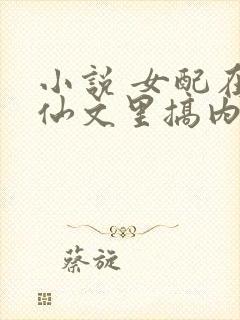 小说 女配在
仙文里搞内
蔡旋